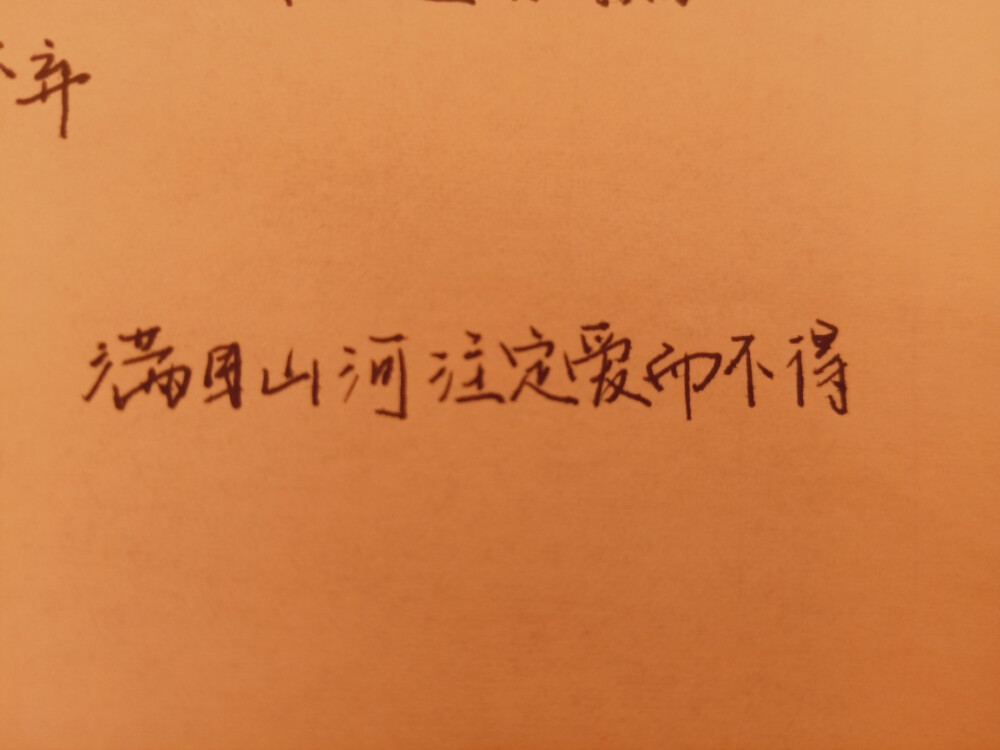 弃
满目山河注定爱而不得